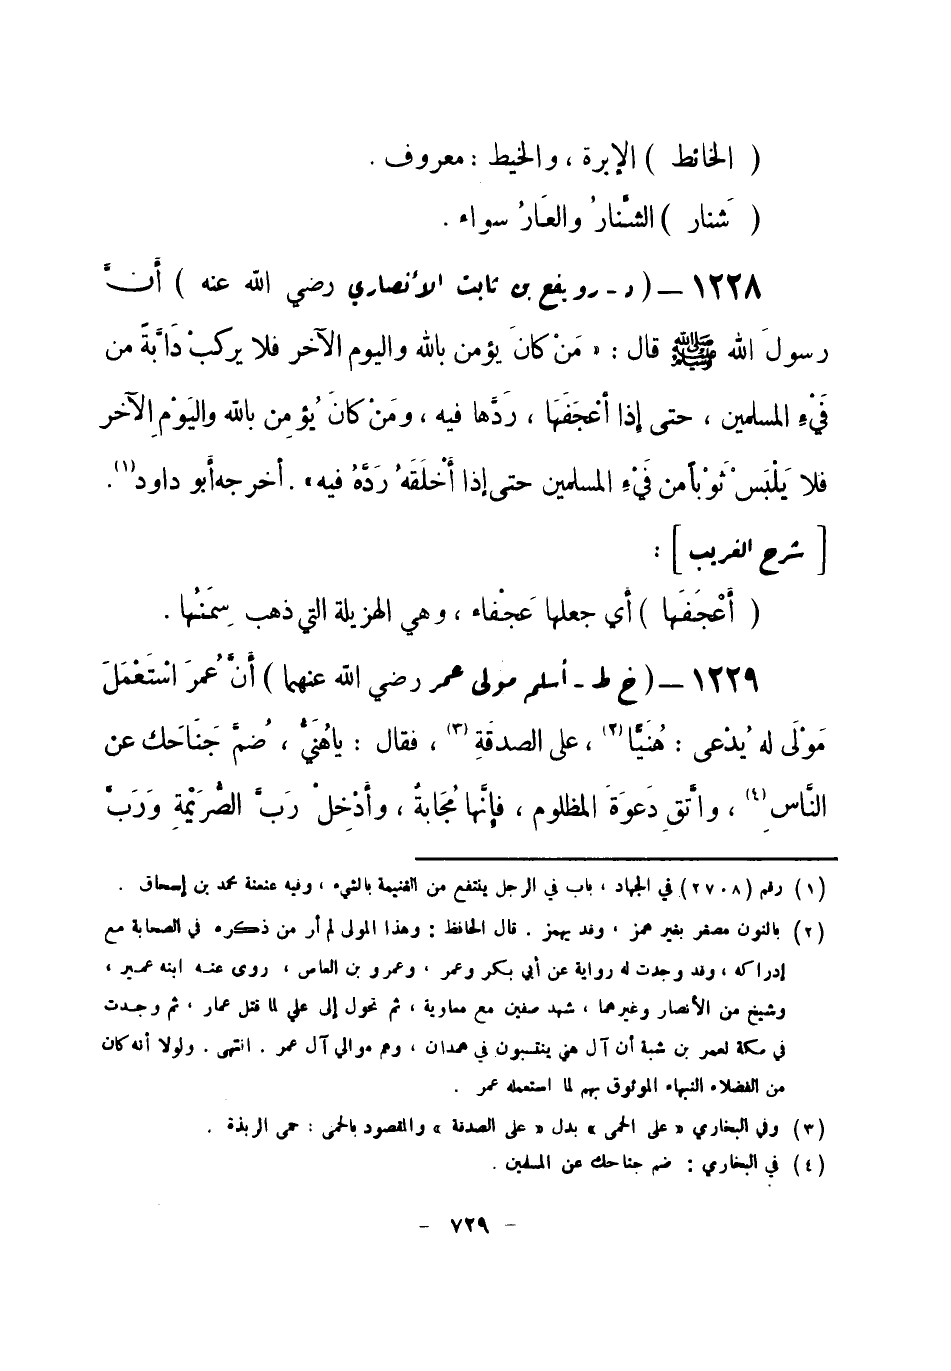 ( الخائط ) الإبرة ، والخيط : معروف .
( شَنار ) الشَّنارُ والعَارُ سواء .
١٢٢٨ – ( د - رويفع بن ثابت الأنصاري رضي الله عنه ) أَنَّ
رسولَ الله ﷺ قال : « مَنْ كانَ يؤمن بالله واليوم الآخر فلا يركبْ دَابَّةً من
فَيْءِ المسلمين ، حتى إذا أَعْجَفَهَا ، رَدَّها فيه ، ومَنْ كانَ يُؤمِن بالله واليَوْمِ الآخر
فلا يَلْبَسْ ثَوْباً من فَيْءِ المسلمين حتى إذا أَخْلَقَهُ رَدَّهُ فيه » . أخرجه أبو داود(١).
[ شرح الغريب ] :
( أَعْجَفَها ) أي جعلها عَجْفاء ، وهي الهزيلة التي ذهب سِمَنُها .
١٢٢٩ – ( خ ط - أسلم مولى عمر رضي الله عنهما ) أَنَّ عُمرَ اسْتَعْمَلَ
مَوْلَى له يُدْعى : هُنَيًّا(٢) ، على الصدقةِ(٣) ، فقال : ياهُنَيُّ ، ضُمَّ جَنَاحَك عن
النَّاسِ(٤) ، واتَّقِ دَعوَةَ المظلوم ، فإنَّها مُجَابةٌ ، وأَدْخِلْ رَبَّ الصُّرَيْمةِ وَرَبَّ
(١) رقم (٢٧٠٨) في الجهاد ، باب في الرجل ينتفع من الغنيمة بالشيء ، وفيه عنعنة محمد بن إسحاق .
(٢) بالنون مصغر بغير همز ، وقد يهمز . قال الحافظ : وهذا المولى لم أر من ذكره في الصحابة مع
إدراكه ، وقد وجدت له رواية عن أبي بكر وعمر ، وعمرو بن العاص ، روى عنه ابنه عمير ،
وشيخ من الأنصار وغيرهما ، شهد صفين مع معاوية ، ثم تحول إلى علي لما قتل عمار ، ثم وجدت
في مكة لعمر بن شبة أن آل هني ينتسبون في همدان ، وهم موالي آل عمر . انتهى . ولولا أنه كان
من الفضلاء النبهاء الموثوق بهم لما استعمله عمر .
(٣) وفي البخاري « على الحمى » بدل « على الصدقة » والمقصود بالحمى : حمى الربذة .
(٤) في البخاري : ضم جناحك عن المسلمين .
- ٧٢٩ -